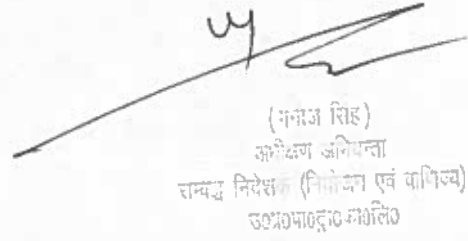 (मनोज सिंह)
अधीक्षण अभियन्ता
सम्बद्ध निदेशक (नियोजन एवं वाणिज्य)
उ०प्र०पा०ट्रा०का०लि०